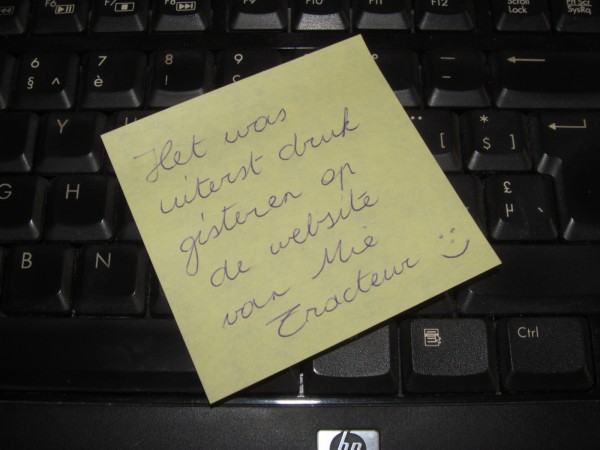 F6
F7
F8
F9
F10
F11
F12
Scroll
Lock
Prt Scr
SysRq
6
§ ^
7
è
8
!
9
ç
*
$ ]
[
Y
U
G
H
B
N
£
µ `
Ctrl
hp
Het was
uiterst druk
gisteren op
de website
van Mie
Tracteur :)